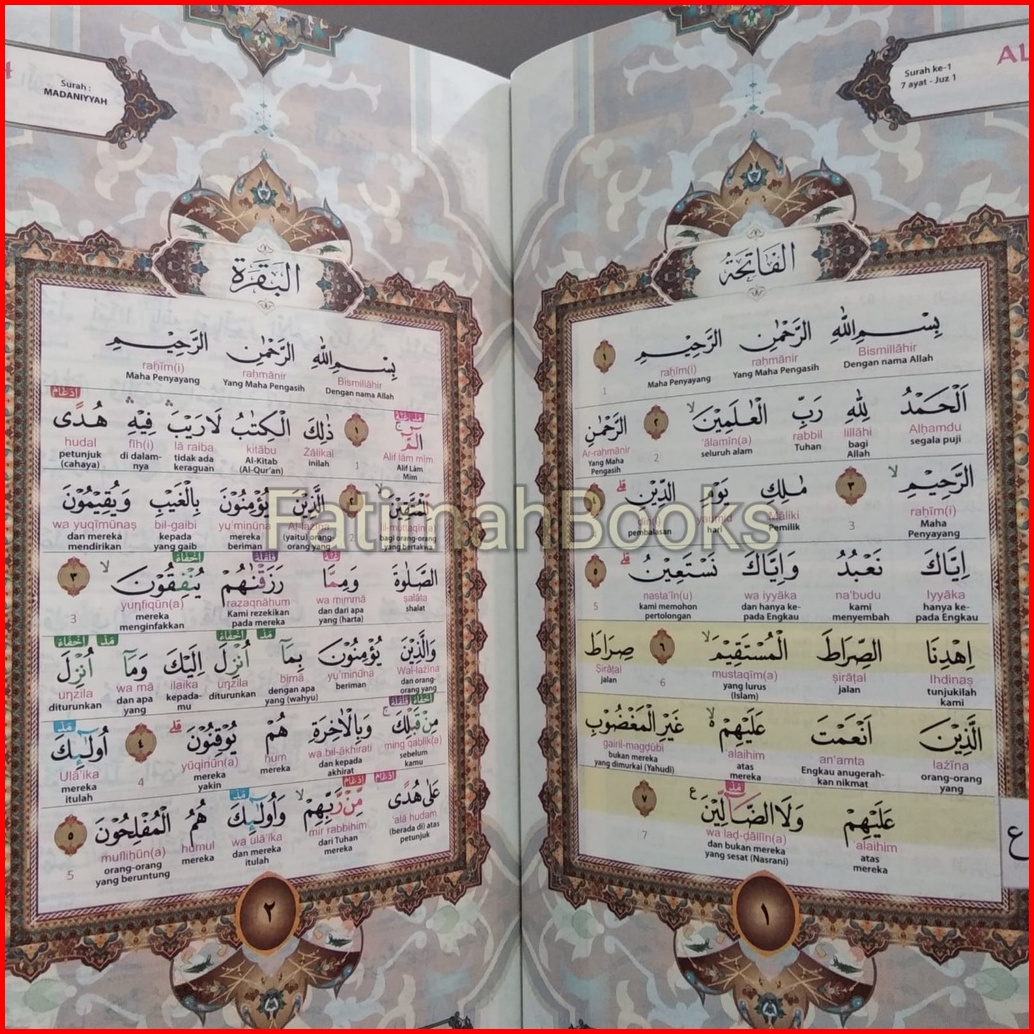 Surah ke-1
7 ayat - Juz 1
الفاتحة
بِسْمِ اللّٰهِ الرَّحْمٰنِ الرَّحِيْمِ ١
Bismillāhir raḥmānir raḥīm(i) 1
Dengan nama Allah Yang Maha Pengasih Maha Penyayang
اَلْحَمْدُ لِلّٰهِ رَبِّ الْعٰلَمِيْنَۙ ٢ الرَّحْمٰنِ
Alḥamdu lillāhi rabbil ‘ālamīn(a) 2 Ar-raḥmānir
segala puji bagi Allah Tuhan seluruh alam Yang Maha Pengasih
الرَّحِيْمِۙ ٣ مٰلِكِ يَوْمِ الدِّيْنِۗ
raḥīm(i) 3 Māliki yaumid dīn(i)
Maha Penyayang Pemilik hari pembalasan
اِيَّاكَ نَعْبُدُ وَاِيَّاكَ نَسْتَعِيْنُۗ ٥
Iyyāka na‘budu wa iyyāka nasta‘īn(u) 5
hanya ke-pada Engkau kami menyembah dan hanya ke-pada Engkau kami memohon pertolongan
اِهْدِنَا الصِّرَاطَ الْمُسْتَقِيْمَۙ ٦ صِرَاطَ
Ihdinaṣ ṣirāṭal mustaqīm(a) 6 Ṣirāṭal
tunjukilah kami jalan yang lurus (Islam) jalan
الَّذِيْنَ اَنْعَمْتَ عَلَيْهِمْۙ غَيْرِ الْمَغْضُوْبِ
lażīna an‘amta ‘alaihim gairil-magḍūbi
orang-orang yang Engkau anugerah-kan nikmat atas mereka bukan mereka yang dimurkai (Yahudi)
مدّ
عَلَيْهِمْ وَلَا الضَّاۤلِّيْنَ ࣖ ٧
‘alaihim wa laḍ-ḍāllīn(a) 7
atas mereka dan bukan mereka yang sesat (Nasrani)
١
ع
Surah :
MADANIYYAH
البقرة
بِسْمِ اللّٰهِ الرَّحْمٰنِ الرَّحِيْمِ
Bismillāhir raḥmānir raḥīm(i)
Dengan nama Allah Yang Maha Pengasih Maha Penyayang
ادغام
الۤمّۤ ۚ ١ ذٰلِكَ الْكِتٰبُ لَا رَيْبَۛ فِيْهِۛ هُدًى
Alif lām mīm 1 Żālikal kitābu lā raiba fīh(i) hudal
Alif Lām Mīm inilah Al-Kitab (Al-Qur'an) tidak ada keraguan di dalam-nya petunjuk (cahaya)
لِّلْمُتَّقِيْنَۙ ٢ الَّذِيْنَ يُؤْمِنُوْنَ بِالْغَيْبِ وَيُقِيْمُوْنَ
lil-muttaqīn(a) 2 Al-lażīna yu'minūna bil-gaibi wa yuqīmūnaṣ
bagi orang-orang yang bertakwa (yaitu) orang-orang yang mereka beriman kepada yang gaib dan mereka mendirikan
الصَّلٰوةَ وَمِمَّا رَزَقْنٰهُمْ يُنْفِقُوْنَۙ ٣
ṣalāta wa mimmā razaqnāhum yunfiqūn(a) 3
shalat dan dari apa yang (harta) Kami rezekikan pada mereka mereka menginfakkan
وَالَّذِيْنَ يُؤْمِنُوْنَ بِمَآ اُنْزِلَ اِلَيْكَ وَمَآ اُنْزِلَ
Wal-lażīna yu'minūna bimā unzila ilaika wa mā unzila
dan orang-orang yang beriman dengan apa yang (wahyu) diturunkan kepada-mu dan apa yang diturunkan
مِنْ قَبْلِكَۚ وَبِالْاٰخِرَةِ هُمْ يُوْقِنُوْنَۗ ٤ اُولٰۤىِٕكَ
ming qablik(a) wa bil-ākhirati hum yūqinūn(a) 4 Ulā'ika
sebelum kamu dan kepada akhirat mereka mereka yakin mereka itulah
عَلٰى هُدًى مِّنْ رَّبِّهِمْۙ وَاُولٰۤىِٕكَ هُمُ الْمُفْلِحُوْنَ ٥
‘alā hudam mir rabbihim wa ulā'ika humul mufliḥūn(a) 5
(berada di) atas petunjuk dari Tuhan mereka dan mereka itulah mereka orang-orang yang beruntung
٢
FatimahBooks